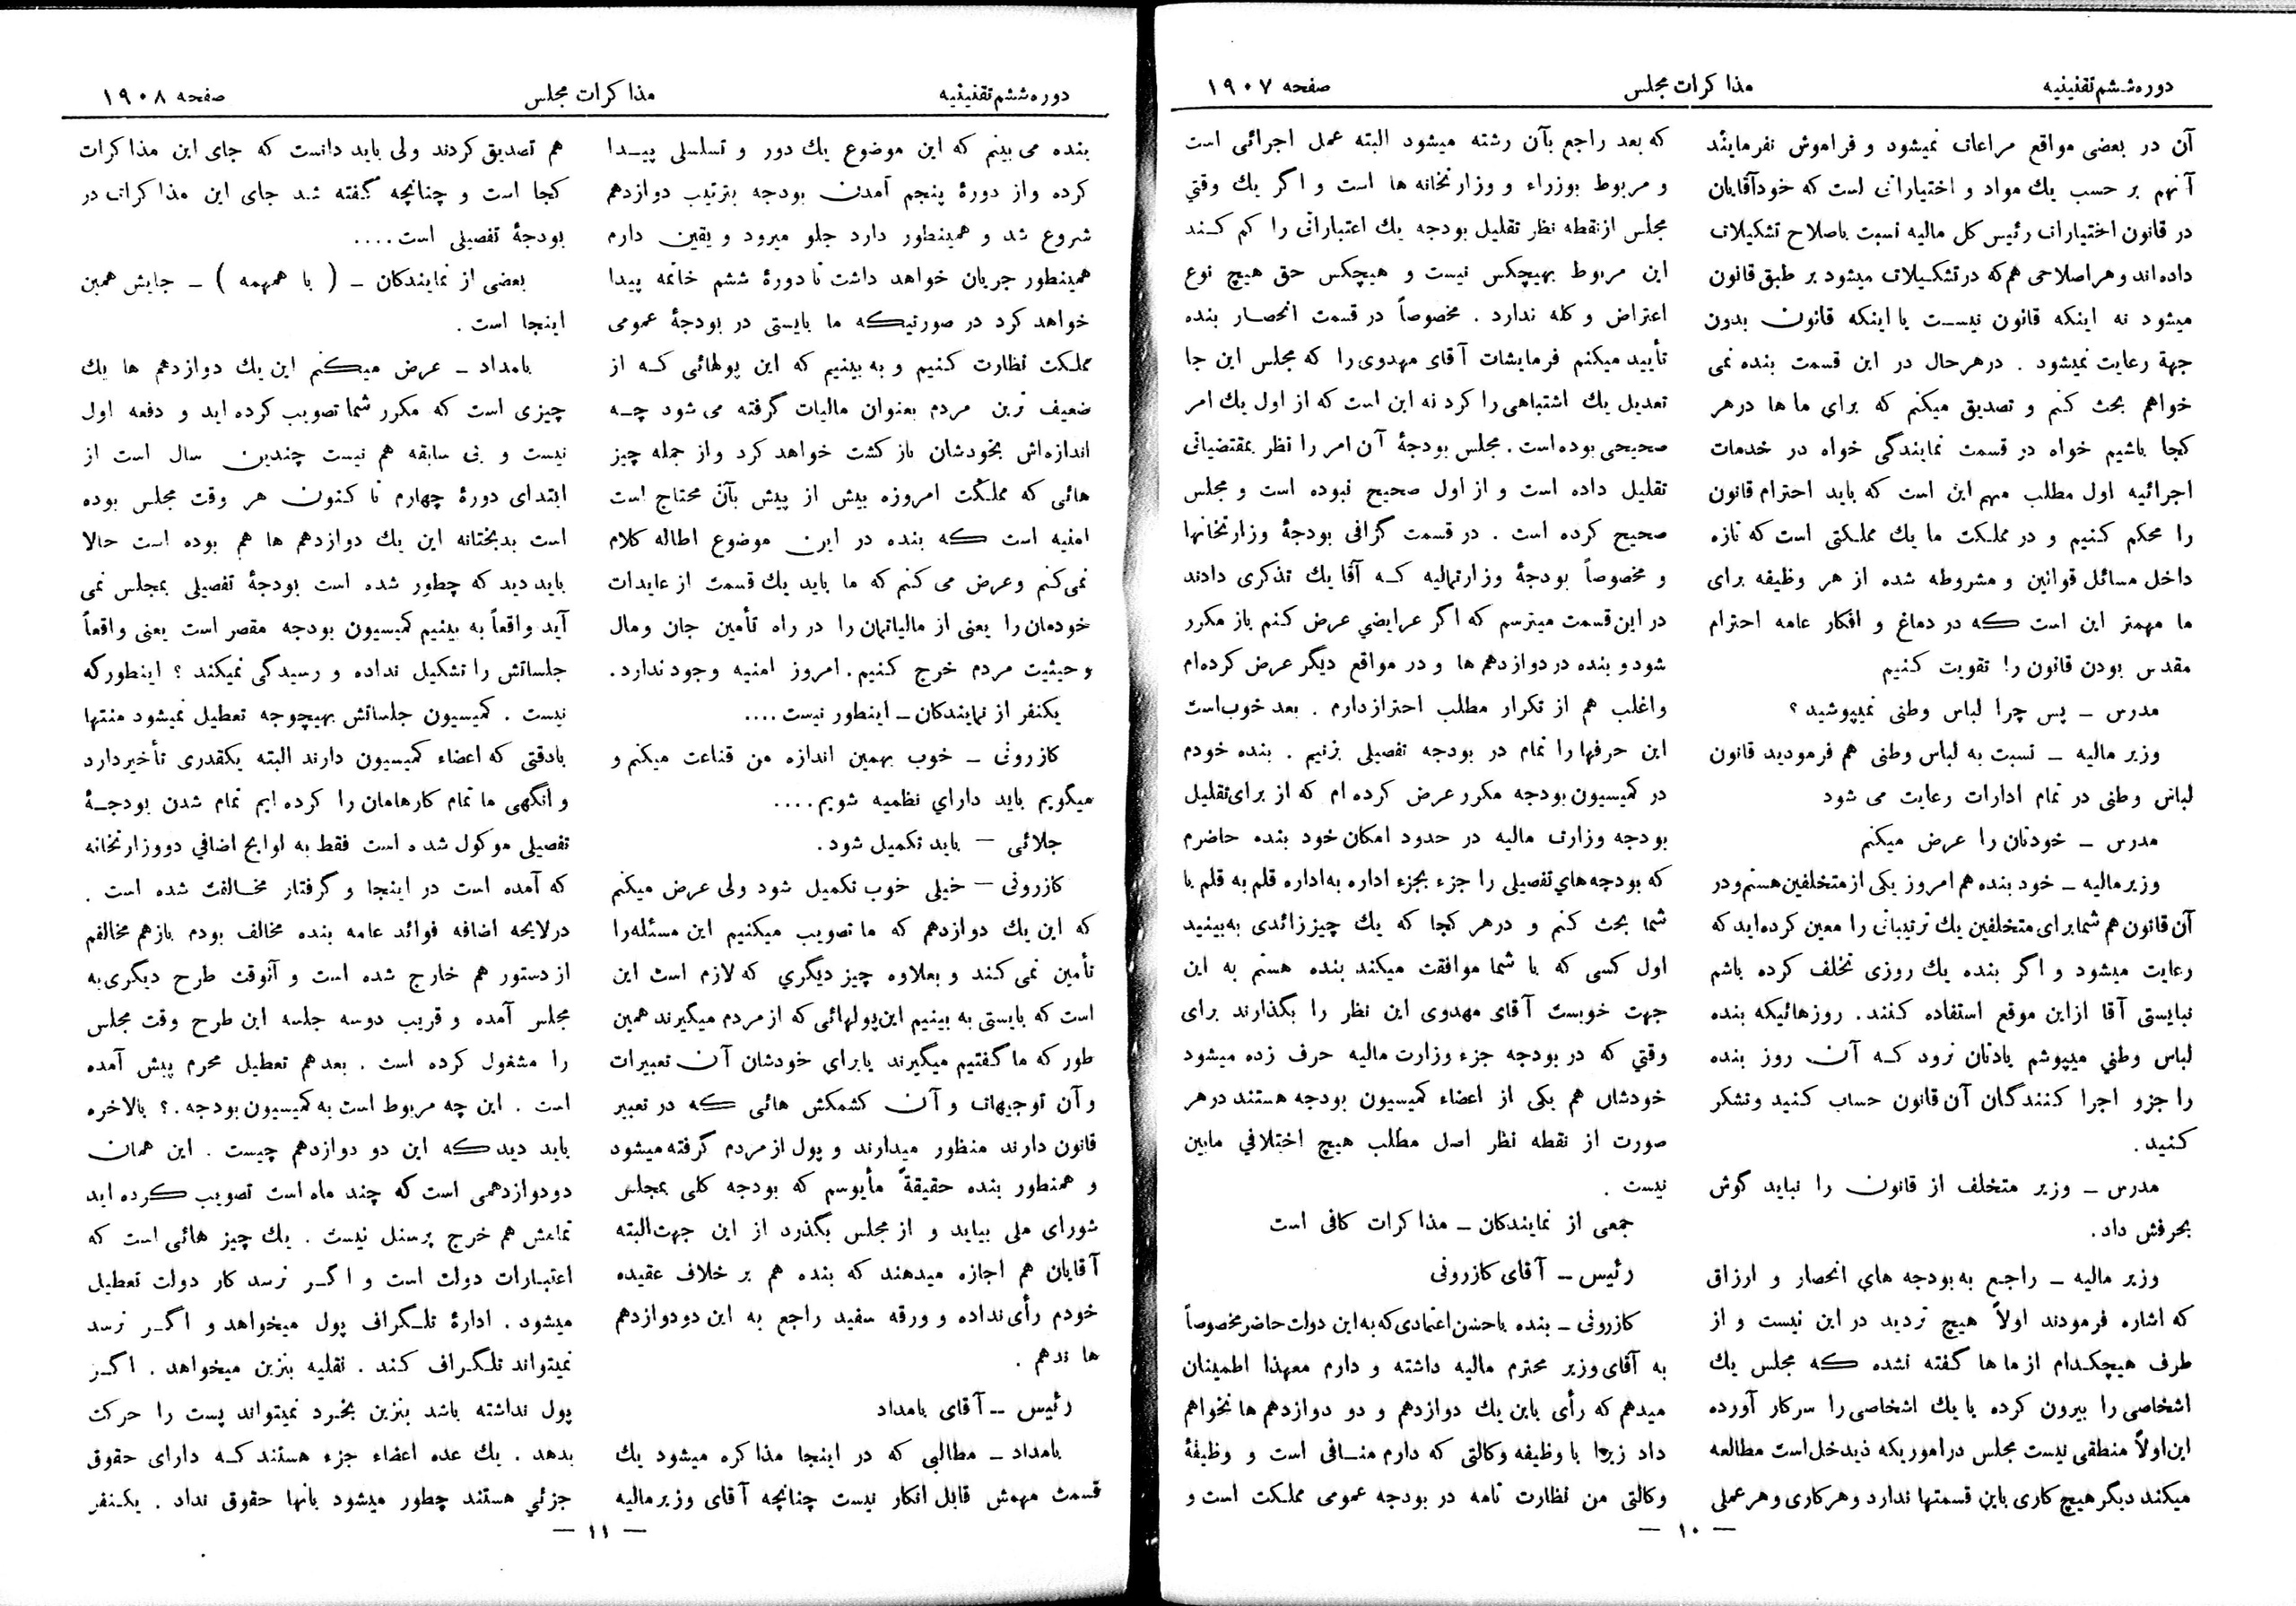 دوره ششم تقنینیه مذاکرات مجلس صفحه ۱۹۰۷
آن در بعضی مواقع مراعات نمیشود و فراموش نفرمایند
آنهم بر حسب یك مواد و اختیاراتی است که خود آقایان
در قانون اختیارات رئیس کل مالیه نسبت باصلاح تشکیلات
داده‌اند و هر اصلاحی هم که در تشکیلات میشود بر طبق قانون
میشود نه اینکه قانون نیست یا اینکه قانون بدون
جهة رعایت نمیشود . درهرحال در این قسمت بنده نمی
خواهم بحث کنم و تصدیق میکنم که برای ما ها درهر
کجا باشیم خواه در قسمت نمایندگی خواه در خدمات
اجرائیه اول مطلب مهم این است که باید احترام قانون
را محکم کنیم و در مملکت ما یك مملکتی است که تازه
داخل مسائل قوانین و مشروطه شده از هر وظیفه برای
ما مهمتر این است که در دماغ و افکار عامه احترام
مقدس بودن قانون را تقویت کنیم
مدرس ـ پس چرا لباس وطنی نمیپوشید ؟
وزیر مالیه ـ نسبت به لباس وطنی هم فرمودید قانون
لباس وطنی در تمام ادارات رعایت می شود
مدرس ـ خودتان را عرض میکنم
وزیر مالیه ـ خود بنده هم امروز یکی از متخلفین هستم و در
آن قانون هم شما برای متخلفین یك ترتیباتی را معین کرده‌اید که
رعایت میشود و اگر بنده یك روزی تخلف کرده باشم
نبایستی آقا ازاین موقع استفاده کنند . روزهائیکه بنده
لباس وطني میپوشم یادتان نرود که آن روز بنده
را جزو اجرا کنندگان آن قانون حساب کنید وتشکر
کنید .
مدرس ـ وزیر متخلف از قانون را نباید گوش
بحرفش داد .
وزیر مالیه ـ راجع به بودجه هاي انحصار و ارزاق
که اشاره فرمودند اولاً هیچ تردید در این نیست و از
طرف هیچکدام از ما ها گفته نشده که مجلس یك
اشخاصی را بیرون کرده یا یك اشخاصی را سرکار آورده
این اولاً منطقی نیست مجلس در اموریکه ذیدخل است مطالعه
میکند دیگر هیچ کاری باین قسمتها ندارد و هر کاری و هر عملی
که بعد راجع بآن رشته میشود البته عمل اجرائی است
و مربوط بوزراء و وزارتخانه ها است و اگر یك وقتي
مجلس از نقطه نظر تقلیل بودجه یك اعتباراتی را کم کند
این مربوط بهیچکس نیست و هیچکس حق هیچ نوع
اعتراض و کله ندارد . مخصوصاً در قسمت انحصار بنده
تأیید میکنم فرمایشات آقای مهدوی را که مجلس این جا
تعدیل یك اشتباهی را کرد نه این است که از اول یك امر
صحیحی بوده است . مجلس بودجهٔ آن امر را نظر بمقتضیاتی
تقلیل داده است و از اول صحیح نبوده است و مجلس
صحیح کرده است . در قسمت گزافی بودجهٔ وزارتخانها
و مخصوصاً بودجهٔ وزارتمالیه که آقا یك تذکری دادند
در این قسمت میترسم که اگر عرایضي عرض کنم باز مکرر
شود و بنده در دوازدهم ها و در مواقع دیگر عرض کرده‌ام
و اغلب هم از تکرار مطلب احتراز دارم . بعد خوب است
این حرفها را تمام در بودجه تفصیلی بزنیم . بنده خودم
در کمیسیون بودجه مکرر عرض کرده ام که از برای تقلیل
بودجه وزارت مالیه در حدود امکان خود بنده حاضرم
که بودجه هاي تفصیلی را جزء بجزء اداره به اداره قلم به قلم با
شما بحث کنم و درهر کجا که یك چیز زائدی به بینید
اول کسی که با شما موافقت میکند بنده هستم به این
جهت خوبست آقای مهدوی این نظر را بگذارند برای
وقتي که در بودجه جزء وزارت مالیه حرف زده میشود
خودشان هم یکی از اعضاء کمیسیون بودجه هستند درهر
صورت از نقطه نظر اصل مطلب هیچ اختلافي مابین
نیست .
جمعی از نمایندکان ـ مذاکرات کافی است
رئیس ـ آقای کازرونی
کازرونی ـ بنده باحسن اعتمادی که به این دولت حاضر مخصوصاً
به آقای وزیر محترم مالیه داشته و دارم معهذا اطمینان
میدهم که رأی باین یك دوازدهم و دو دوازدهم ها نخواهم
داد زیرا با وظیفه وکالتی که دارم منافی است و وظیفهٔ
وکالتی من نظارت تامه در بودجه عمومی مملکت است و
— ۱۰ —
دوره ششم تقنینیه مذاکرات مجلس صفحه ۱۹۰۸
بنده می بینم که این موضوع یك دور و تسلسلی پیدا
کرده و از دورهٔ پنجم آمدن بودجه بترتیب دوازدهم
شروع شد و همینطور دارد جلو میرود و یقین دارم
همینطور جریان خواهد داشت تا دورهٔ ششم خاتمه پیدا
خواهد کرد در صورتیکه ما بایستی در بودجهٔ عمومی
مملکت نظارت کنیم و به بینیم که این پولهائی که از
ضعیف ترین مردم بعنوان مالیات گرفته می شود چه
اندازه‌اش بخودشان باز کشت خواهد کرد و از جمله چیز
هائی که مملکت امروزه بیش از پیش بآن محتاج است
امنیه است که بنده در این موضوع اطاله کلام
نمی کنم و عرض می کنم که ما باید یك قسمت از عایدات
خودمان را یعنی از مالیاتمان را در راه تأمین جان و مال
و حیثیت مردم خرج کنیم . امروز امنیه وجود ندارد .
یکنفر از نمایندکان ـ اینطور نیست ....
کازرونی ـ خوب بهمین اندازه من قناعت میکنم و
میگویم باید داراي نظمیه شویم ....
جلائی — باید تکمیل شود .
کازرونی — خیلی خوب تکمیل شود ولی عرض میکنم
که این یك دوازدهم که ما تصویب میکنیم این مسئله را
تأمین نمی کند و بعلاوه چیز دیگري که لازم است این
است که بایستی به بینیم این پولهائی که از مردم میگیرند همین
طور که ما گفتیم میگیرند یا برای خودشان آن تعبیرات
و آن توجیهات و آن کشمکش هائی که در تعبیر
قانون دارند منظور میدارند و پول از مردم گرفته میشود
و همنطور بنده حقیقةً مأیوسم که بودجه کلی بمجلس
شورای ملی بیاید و از مجلس بگذرد از این جهت البته
آقایان هم اجازه میدهند که بنده هم بر خلاف عقیده
خودم رأی نداده و ورقه سفید راجع به این دو دوازدهم
ها ندهم .
رئیس ـ آقای بامداد
بامداد ـ مطالبی که در اینجا مذاکره میشود یك
قسمت مهمش قابل انکار نیست چنانچه آقای وزیر مالیه
هم تصدیق کردند ولی باید دانست که جای این مذاکرات
کجا است و چنانچه گفته شد جای این مذاکرات در
بودجهٔ تفصیلی است ....
بعضی از نمایندکان ـ ( با همهمه ) ـ جایش همین
اینجا است .
بامداد ـ عرض میکنم این یك دوازدهم ها یك
چیزی است که مکرر شما تصویب کرده اید و دفعه اول
نیست و بی سابقه هم نیست چندین سال است از
ابتدای دورهٔ چهارم تا کنون هر وقت مجلس بوده
است بدبختانه این یك دوازدهم ها هم بوده است حالا
باید دید که چطور شده است بودجهٔ تفصیلی بمجلس نمی
آید واقعاً به بینیم کمیسیون بودجه مقصر است یعنی واقعاً
جلساتش را تشکیل نداده و رسیدگی نمیکند ؟ اینطور که
نیست . کمیسیون جلساتش بهیچوجه تعطیل نمیشود منتها
بادقتی که اعضاء کمیسیون دارند البته یکقدری تأخیر دارد
و آنگهی ما تمام کارهامان را کرده ایم تمام شدن بودجهٔ
تفصیلی موکول شده است فقط به لوایح اضافي دو وزارتخانه
که آمده است در اینجا و گرفتار مخالفت شده است .
در لایحه اضافه فوائد عامه بنده مخالف بودم بازهم مخالفم
از دستور هم خارج شده است و آنوقت طرح دیگری به
مجلس آمده و قریب دوسه جلسه این طرح وقت مجلس
را مشغول کرده است . بعد هم تعطیل محرم پیش آمده
است . این چه مربوط است به کمیسیون بودجه .؟ بالاخره
باید دید که این دو دوازدهم چیست . این همان
دو دوازدهمی است که چند ماه است تصویب کرده اید
تمامش هم خرج پرسنل نیست . یك چیز هائی است که
اعتبارات دولت است و اگر نرسد کار دولت تعطیل
میشود . ادارهٔ تلگراف پول میخواهد و اگر نرسد
نمیتواند تلگراف کند . نقلیه بنزین میخواهد . اگر
پول نداشته باشد بنزین بخرد نمیتواند پست را حرکت
بدهد . یك عده اعضاء جزء هستند که دارای حقوق
جزئي هستند چطور میشود بانها حقوق نداد . یکنفر
— ۱۱ —